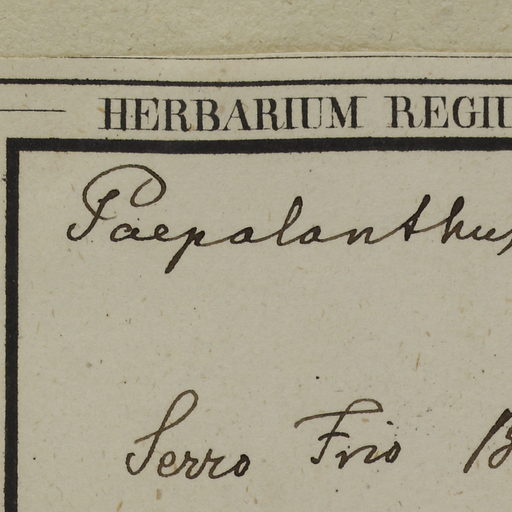 HERBARIUM REGIU
Paepalanthus
Serro Frio B